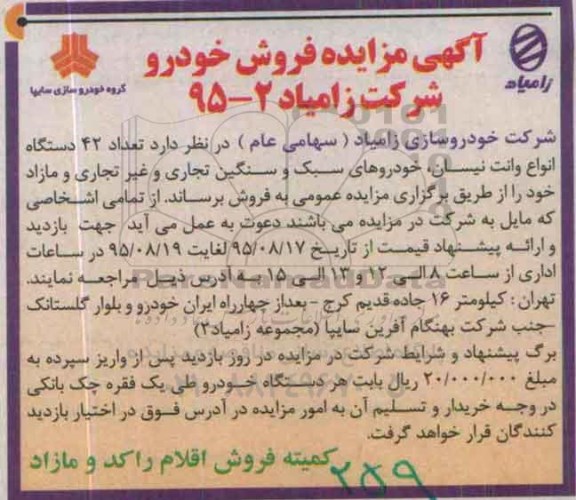 آگهی مزایده فروش خودرو
شرکت زامیاد ۲–۹۵
زامیاد
گروه خودروسازی سایپا
شرکت خودروسازی زامیاد ( سهامی عام ) در نظر دارد تعداد ۴۲ دستگاه
انواع وانت نیسان، خودروهای سبک و سنگین تجاری و غیر تجاری و مازاد
خود را از طریق برگزاری مزایده عمومی به فروش برساند. از تمامی اشخاصی
که مایل به شرکت در مزایده می باشند دعوت به عمل می آید جهت بازدید
و ارائه پیشنهاد قیمت از تاریخ ۹۵/۰۸/۱۷ لغایت ۹۵/۰۸/۱۹ در ساعات
اداری از ساعت ۸ الی ۱۲ و ۱۳ الی ۱۵ به آدرس ذیل مراجعه نمایند.
تهران : کیلومتر ۱۶ جاده قدیم کرج – بعداز چهارراه ایران خودرو و بلوار گلستانک
–جنب شرکت بهنگام آفرین سایپا (مجموعه زامیاد۲)
برگ پیشنهاد و شرایط شرکت در مزایده در روز بازدید پس از واریز سپرده به
مبلغ ۲۰/۰۰۰/۰۰۰ ریال بابت هر دستگاه خودرو طی یک فقره چک بانکی
در وجه خریدار و تسلیم آن به امور مزایده در آدرس فوق در اختیار بازدید
کنندگان قرار خواهد گرفت.
کمیته فروش اقلام راکد و مازاد
۲۵۹
ParsNamadData